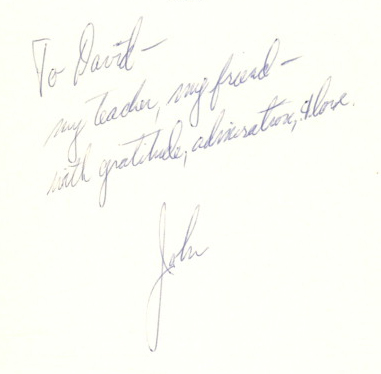 To David—
my teacher, my friend—
with gratitude, admiration, & love.
John